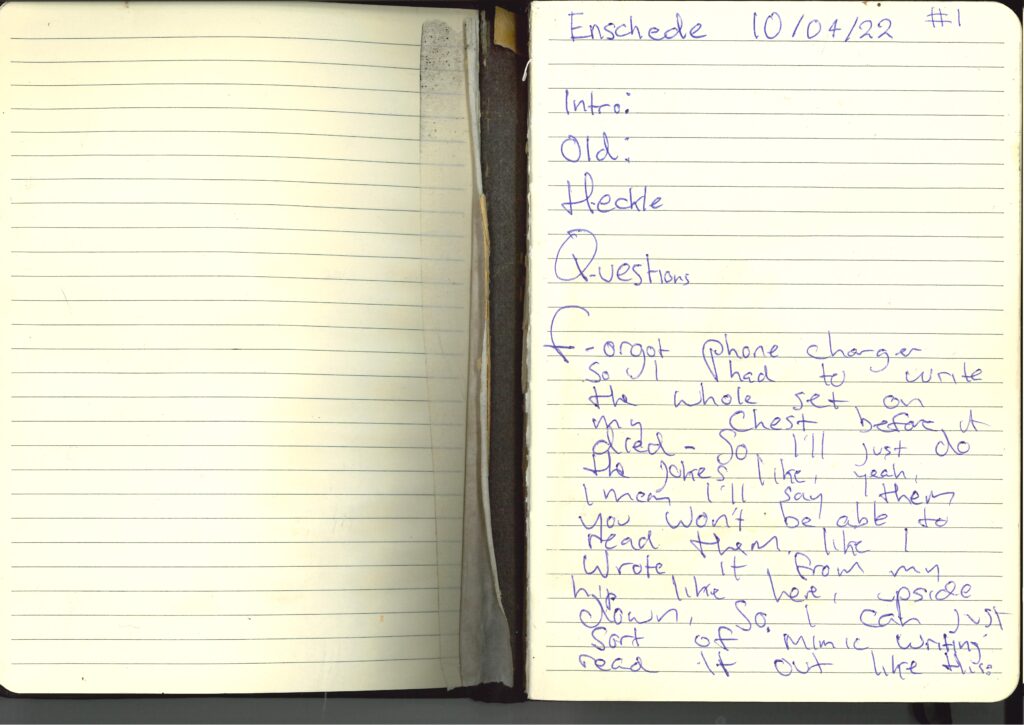 Enschede 10/04/22 #1
Intro:
Old:
Heckle
Questions
F-orgot phone charger
So I had to write
the whole set on
my chest before it
died - So I'll just do
the jokes like, yeah,
I mean I'll say them
you won't be able to
read them, like I
wrote it from my
hip like here, upside
down, So I can just
Sort of mimic writing
read it out like this: